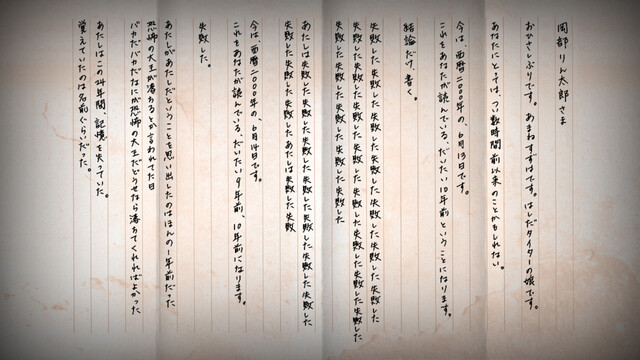 岡部りん太郎さま
おひさしぶりです。あまねすずはです。はしだタイターの娘です。
あなたにとっては、つい数時間前以来のことかもしれない。
今は、西暦二〇〇〇年の、6月13日です。
これをあなたが読んでいる、だいたい10年前ということになります。
結論だけ、書く。
失敗した失敗した失敗した失敗した失敗した失敗した失敗した失敗した
失敗した失敗した失敗した失敗した失敗した失敗した失敗した失敗した
失敗した失敗した失敗した失敗した失敗した
あたしは失敗した失敗した失敗した失敗した失敗した失敗した失敗した
失敗した失敗した失敗したあたしは失敗した失敗
今は、西暦二〇〇〇年の、6月14日です。
これをあなたが読んでいる、だいたい9年前、10年前になります。
失敗した。
あたしがあたしだということを思い出したのはほんの一年前だった
恐怖の大王が落ちるとか言われてた日
バカだバカだなにが恐怖の大王だどうせなら落ちてくれればよかった
あたしはこの24年間、記憶を失っていた。
覚えていたのは名前ぐらいだった。